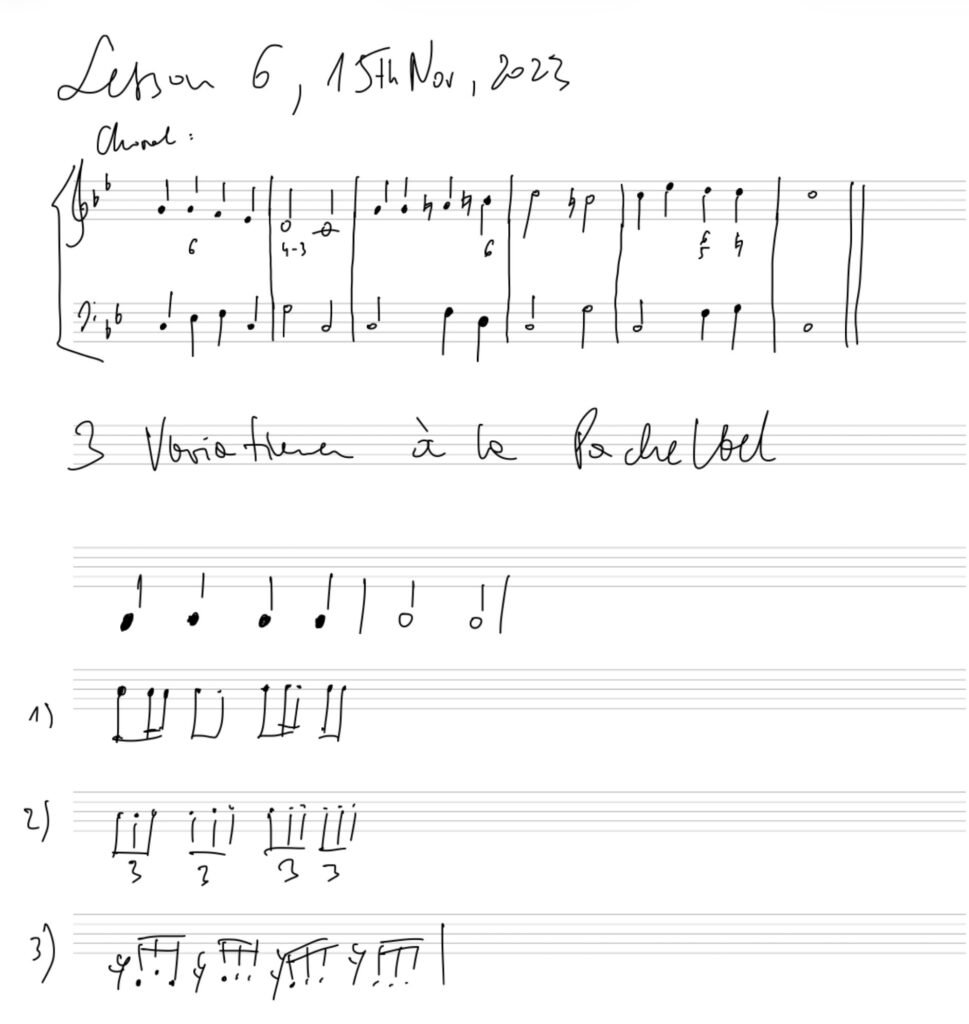 Lesson 6, 15th Nov, 2023
Choral:
6 4-3 6 6 5
3 Variationen à la Pachelbel
1)
2)
3 3 3 3
3)